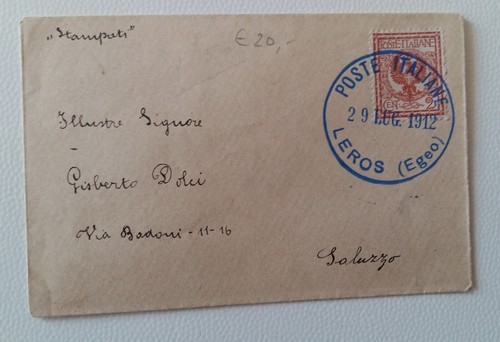 „Stampati”
€20,-
POSTE ITALIANE
CEN. 2
POSTE ITALIANE
29 LUG. 1912
LEROS (Egeo)
Illustre Signore
-
Gisberto Dolci
Via Bodoni - 11-16
Saluzzo